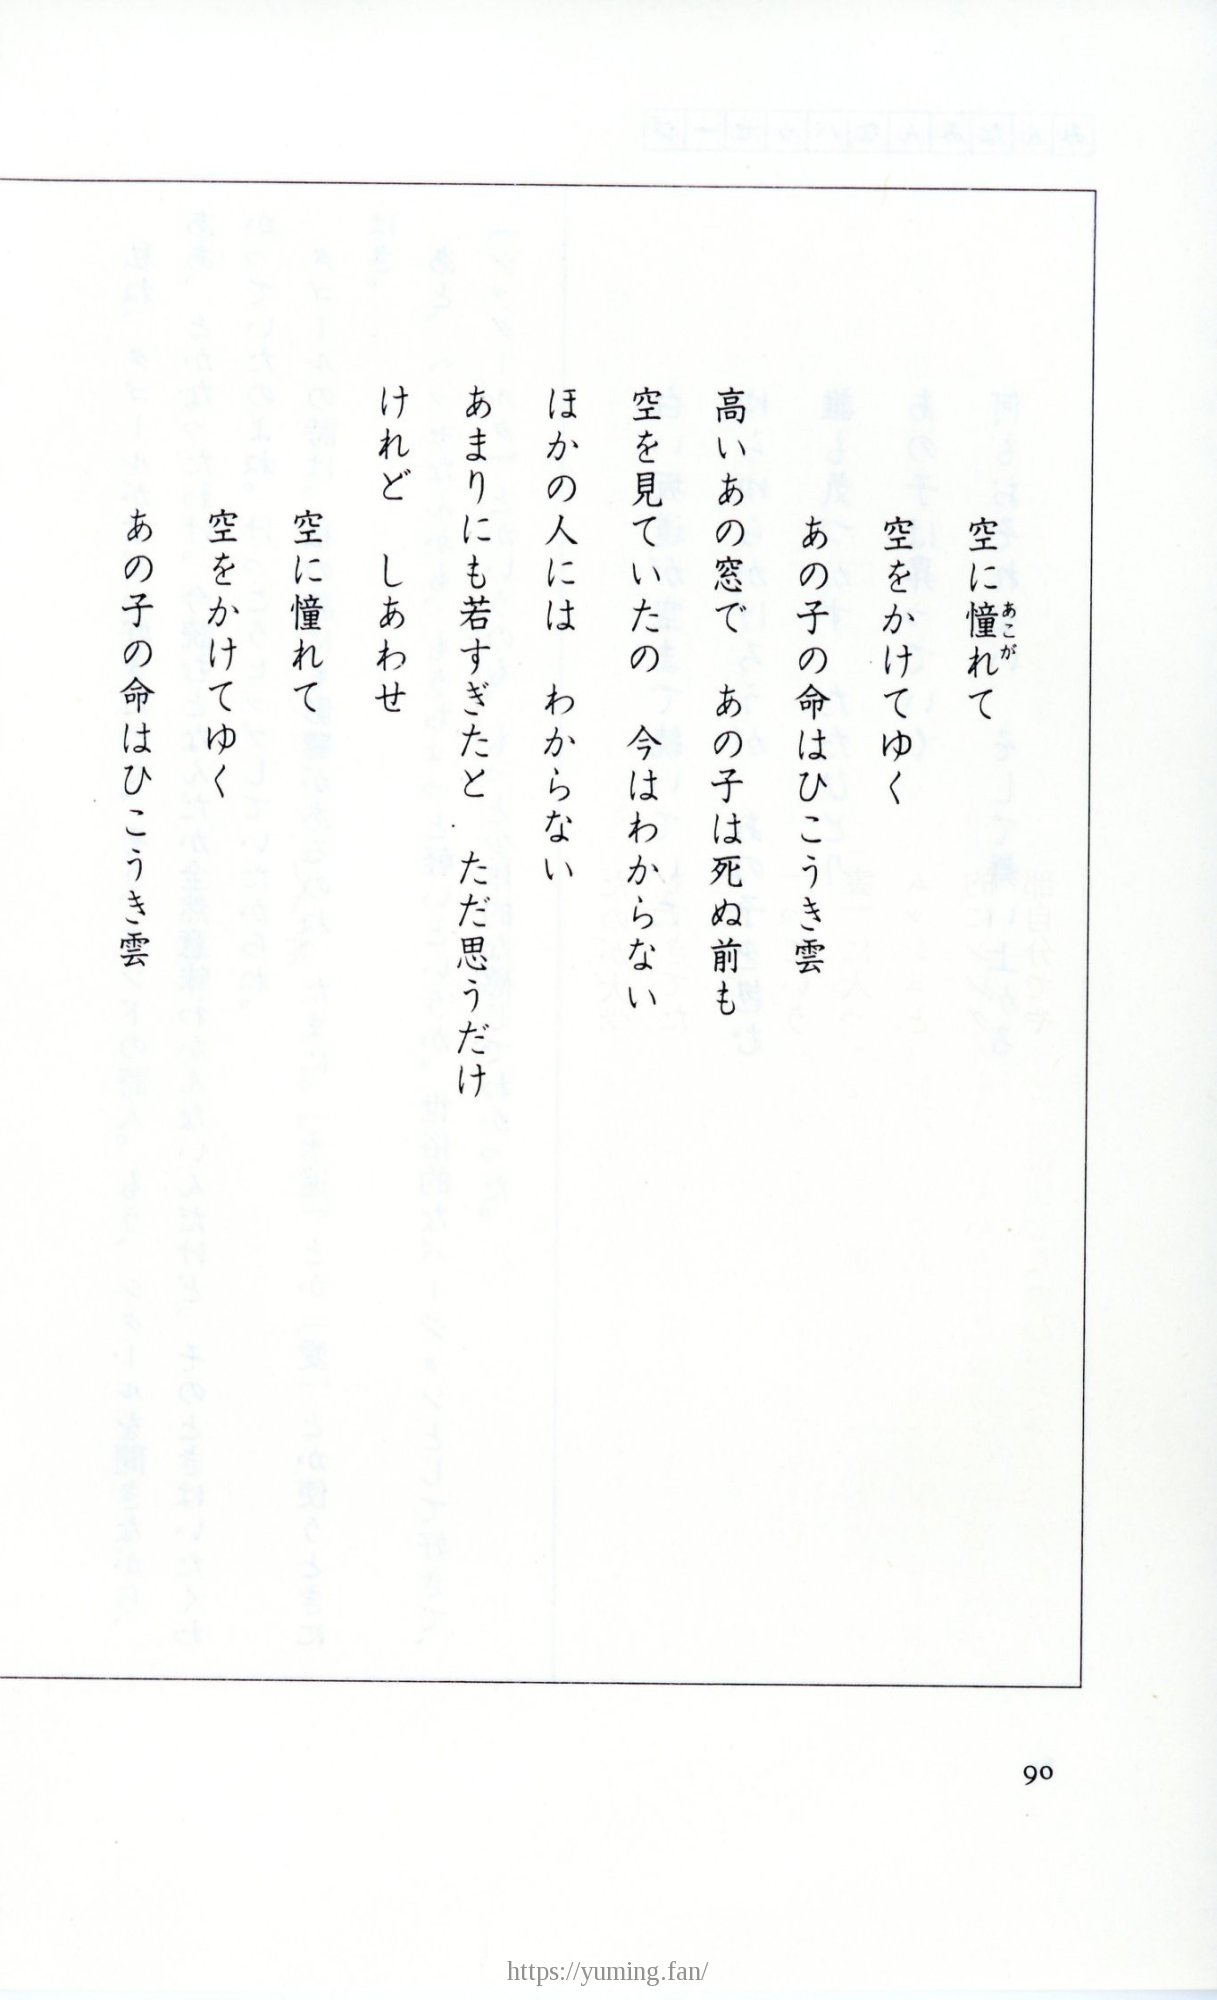 空に憧れて
あこが
空をかけてゆく
あの子の命はひこうき雲
高いあの窓で　あの子は死ぬ前も
空を見ていたの　今はわからない
ほかの人には　わからない
あまりにも若すぎたと　ただ思うだけ
けれど　しあわせ
空に憧れて
空をかけてゆく
あの子の命はひこうき雲
90
https://yuming.fan/